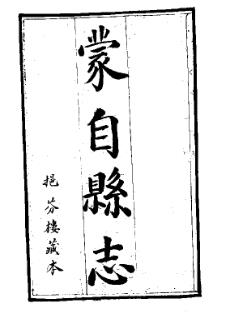 蒙自縣志
挹芬樓藏本